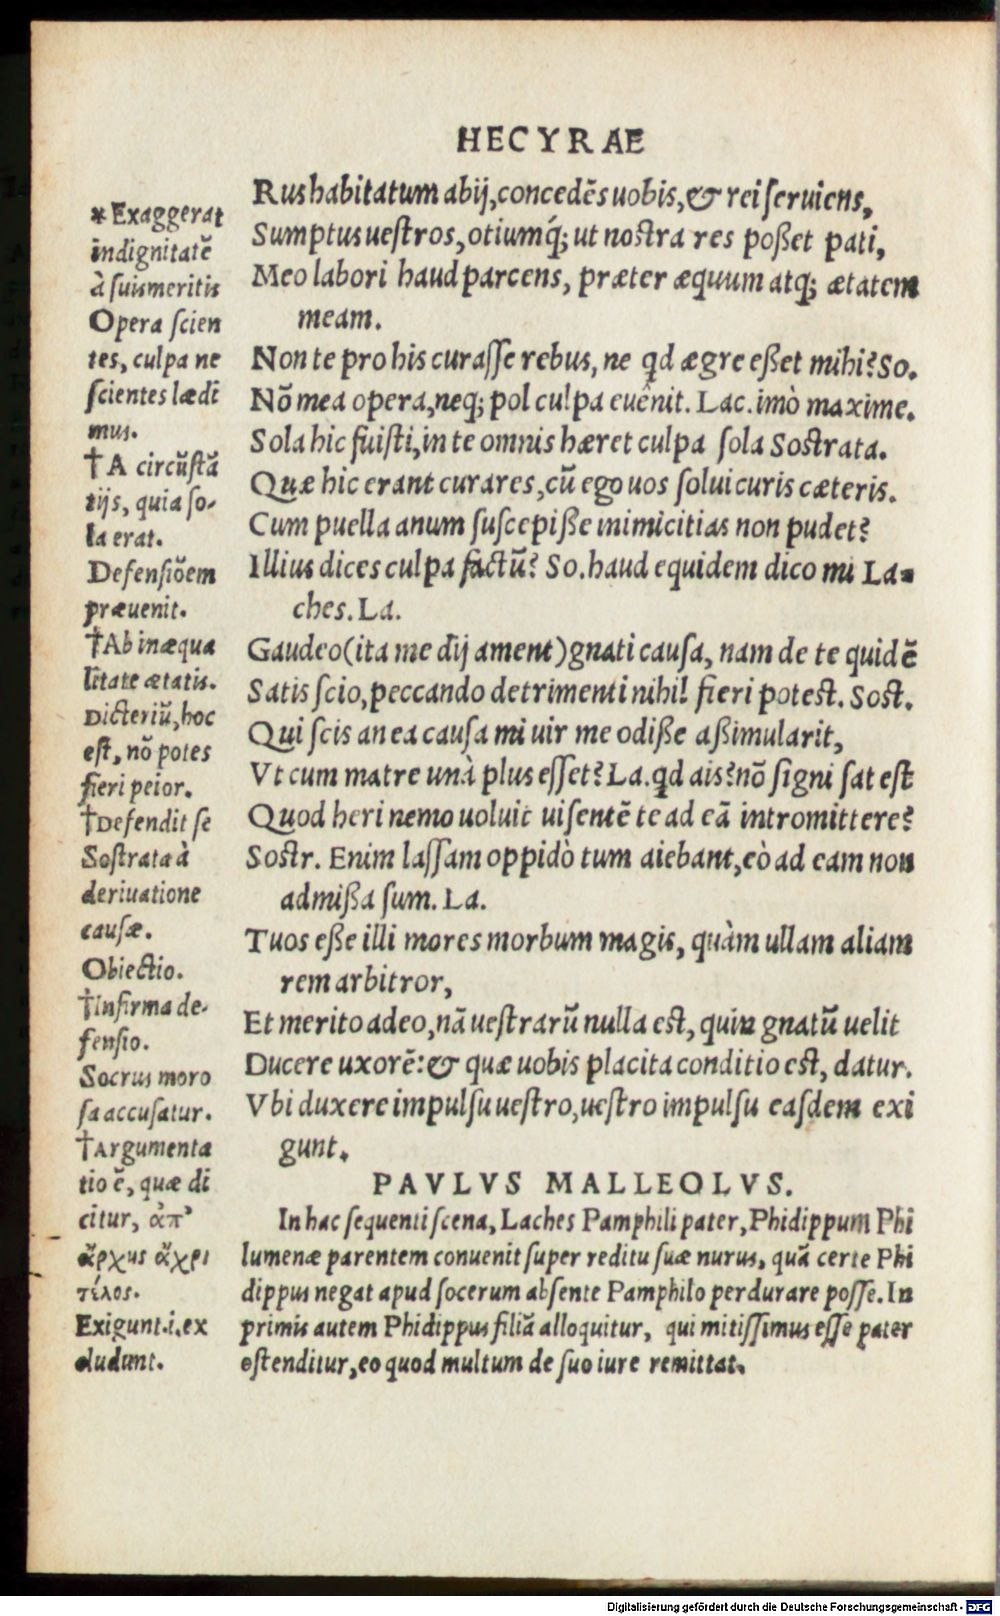 HECYRAE
* Exaggerat
indignitatē
à suis meritis
Opera scien
tes, culpa ne
scientes lædi
mus.
† A circūstā
tijs, quia so-
la erat.
Defensiōem
præuenit.
† Ab inæqua
litate ætatis.
Dicteriū, hoc
est, nō potes
fieri peior.
† Defendit se
Sostrata à
deriuatione
causæ.
Obiectio.
† Infirma de-
fensio.
Socrus moro
sa accusatur.
† Argumenta
tio ē, quæ di
citur, ἀπ'
ἄρχης ἄχρι
τέλος.
Exigunt.i.ex
cludunt.
Rus habitatum abij, concedēs uobis, & rei seruiens,
Sumptus uestros, otiumq́; ut nostra res poßet pati,
Meo labori haud parcens, præter æquum atq; ætatem
meam.
Non te pro his curasse rebus, ne qd ægre eßet mihi? So.
Nō mea opera, neq; pol culpa euênit. Lac. imò maxime.
Sola hic fuisti, in te omnis hæret culpa sola Sostrata.
Quæ hic erant curares, cū ego uos solui curis cæteris.
Cum puella anum suscepiße inimicitias non pudet?
Illius dices culpa factū? So. haud equidem dico mi La-
ches. La.
Gaudeo (ita me dij ament) gnati causa, nam de te quidē
Satis scio, peccando detrimenti nihil fieri potest. Sost.
Qui scis an ea causa mi uir me odiße aßimularit,
Vt cum matre unà plus esset? La. qd ais? nō signi sat est
Quod heri nemo uoluit uisentē te ad eā intromittere?
Sostr. Enim lassam oppidò tum aiebant, eò ad eam non
admißa sum. La.
Tuos eße illi mores morbum magis, quàm ullam aliam
rem arbitror,
Et merito adeo, nā uestrarū nulla est, quin gnatū uelit
Ducere uxorē: & quæ uobis placita conditio est, datur.
Vbi duxere impulsu uestro, uestro impulsu easdem exi
gunt.
PAVLVS MALLEOLVS.
In hac sequenti scena, Laches Pamphili pater, Phidippum Phi
lumenæ parentem conuenit super reditu suæ nurus, quā certe Phi
dippus negat apud socerum absente Pamphilo perdurare posse. In
primis autem Phidippus filiā alloquitur, qui mitissimus esse pater
ostenditur, eo quod multum de suo iure remittat.
Digitalisierung gefördert durch die Deutsche Forschungsgemeinschaft - DFG